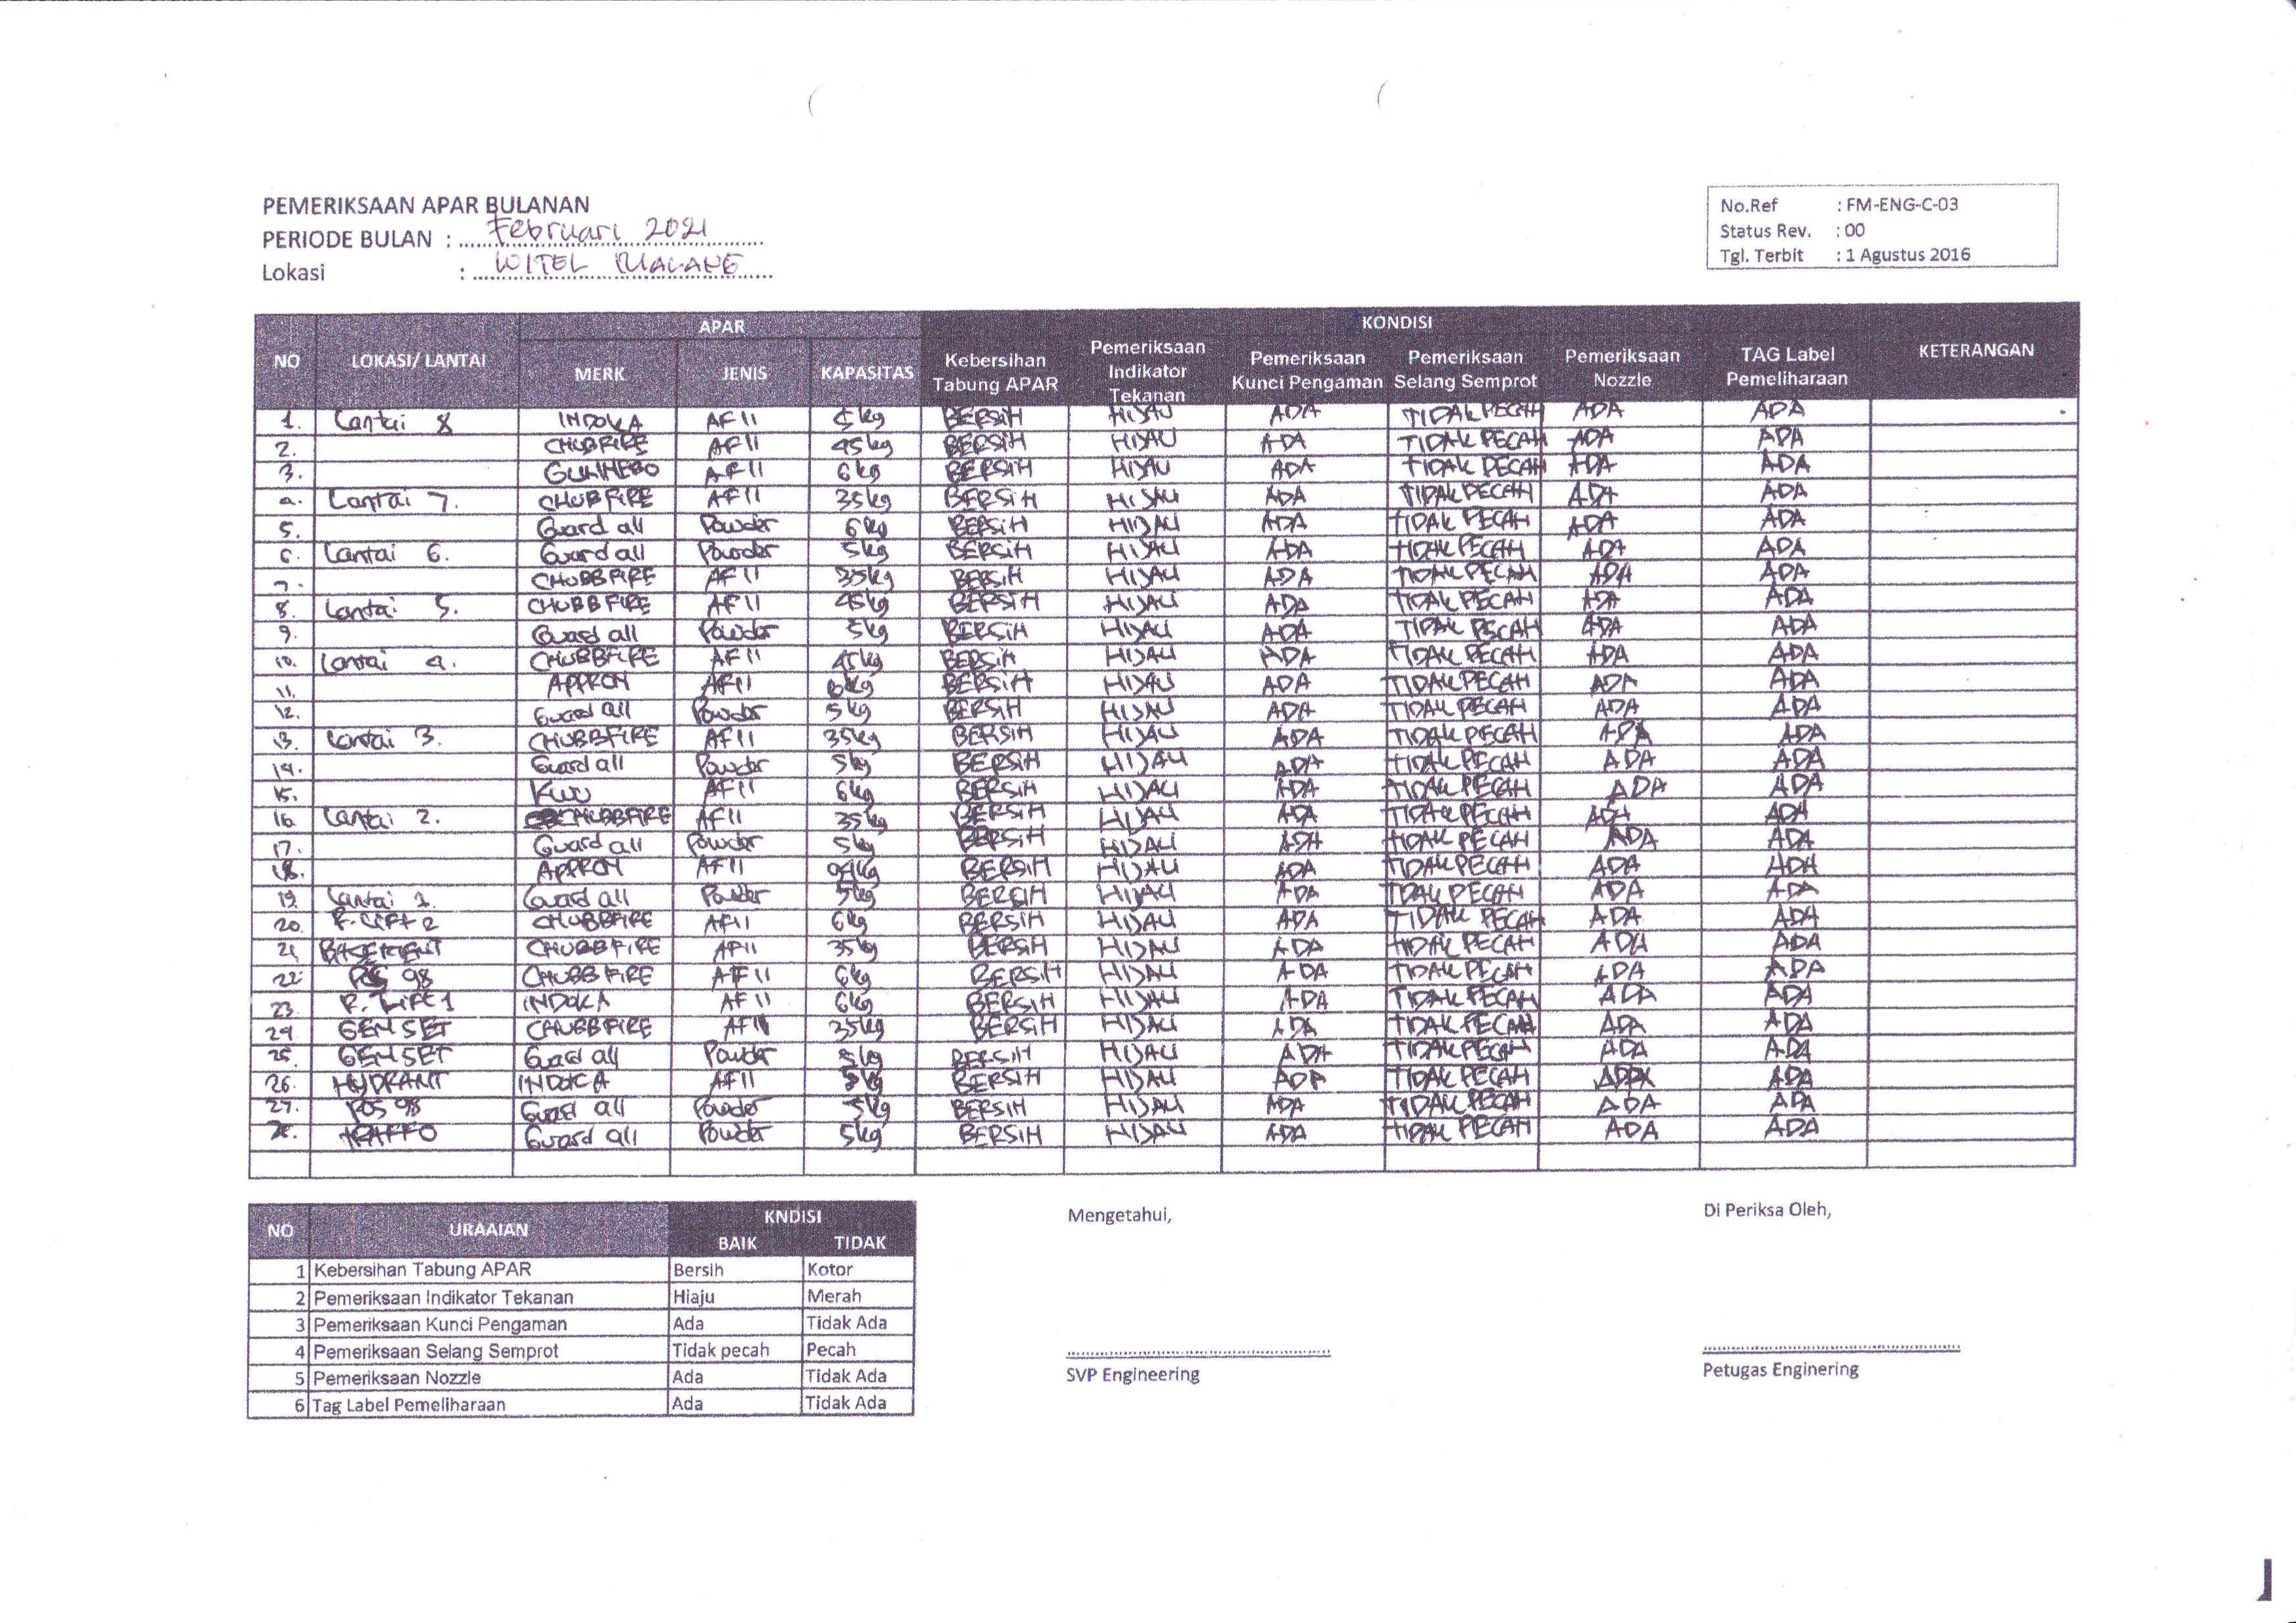 PEMERIKSAAN APAR BULANAN
PERIODE BULAN : Februari 2021
Lokasi : WITEL MALANG
No.Ref : FM-ENG-C-03
Status Rev. : 00
Tgl. Terbit : 1 Agustus 2016
NO LOKASI/ LANTAI APAR KONDISI KETERANGAN
MERK JENIS KAPASITAS Kebersihan Tabung APAR Pemeriksaan Indikator Tekanan Pemeriksaan Kunci Pengaman Pemeriksaan Selang Semprot Pemeriksaan Nozzle TAG Label Pemeliharaan
1. Lantai 8 INDOKA AF11 5kg BERSIH HIJAU ADA TIDAK PECAH ADA ADA
2. CHUBBFIRE AF11 45kg BERSIH HIJAU ADA TIDAK PECAH ADA ADA
3. GUNNEBO AF11 6kg BERSIH HIJAU ADA TIDAK PECAH ADA ADA
4. Lantai 7. CHUBFIRE AF11 35kg BERSIH HIJAU ADA TIDAK PECAH ADA ADA
5. Guard all Powder 6kg BERSIH HIJAU ADA TIDAK PECAH ADA ADA
6. Lantai 6. Guard all Powder 5kg BERSIH HIJAU ADA TIDAK PECAH ADA ADA
7. CHUBBFIRE AF11 35kg BERSIH HIJAU ADA TIDAK PECAH ADA ADA
8. Lantai 5. CHUBBFIRE AF11 45kg BERSIH HIJAU ADA TIDAK PECAH ADA ADA
9. Guard all Powder 5kg BERSIH HIJAU ADA TIDAK PECAH ADA ADA
10. Lantai 4. CHUBBFIRE AF11 45kg BERSIH HIJAU ADA TIDAK PECAH ADA ADA
11. APPRON AF11 6kg BERSIH HIJAU ADA TIDAK PECAH ADA ADA
12. Guard all Powder 5kg BERSIH HIJAU ADA TIDAK PECAH ADA ADA
13. Lantai 3. CHUBBFIRE AF11 35kg BERSIH HIJAU ADA TIDAK PECAH ADA ADA
14. Guard all Powder 5kg BERSIH HIJAU ADA TIDAK PECAH ADA ADA
15. AF11 6kg BERSIH HIJAU ADA TIDAK PECAH ADA ADA
16. Lantai 2. CHUBBFIRE AF11 35kg BERSIH HIJAU ADA TIDAK PECAH ADA ADA
17. Guard all Powder 5kg BERSIH HIJAU ADA TIDAK PECAH ADA ADA
18. APPRON AF11 BERSIH HIJAU ADA TIDAK PECAH ADA ADA
19. Lantai 1. Guard all Powder 5kg BERSIH HIJAU ADA TIDAK PECAH ADA ADA
20. R. LIFT 2 CHUBBFIRE AF11 6kg BERSIH HIJAU ADA TIDAK PECAH ADA ADA
21 BASEMENT CHUBBFIRE AF11 35kg BERSIH HIJAU ADA TIDAK PECAH ADA ADA
22 98 CHUBBFIRE AF11 6kg BERSIH HIJAU ADA TIDAK PECAH ADA ADA
23. R. LIFT 1 INDOKA AF11 6kg BERSIH HIJAU ADA TIDAK PECAH ADA ADA
24. GENSET CHUBBFIRE AF11 25kg BERSIH HIJAU ADA TIDAK PECAH ADA ADA
25. GENSET Guard all Powder 5kg BERSIH HIJAU ADA TIDAK PECAH ADA ADA
26. HYDRANT INDOKA AF11 BERSIH HIJAU ADA TIDAK PECAH ADA ADA
27. POS 98 Guard all Powder 5kg BERSIH HIJAU ADA TIDAK PECAH ADA ADA
28. TRAFFO Guard all Powder 5kg BERSIH HIJAU ADA TIDAK PECAH ADA ADA
NO URAAIAN KNDISI
BAIK TIDAK
1 Kebersihan Tabung APAR Bersih Kotor
2 Pemeriksaan Indikator Tekanan Hiaju Merah
3 Pemeriksaan Kunci Pengaman Ada Tidak Ada
4 Pemeriksaan Selang Semprot Tidak pecah Pecah
5 Pemeriksaan Nozzle Ada Tidak Ada
6 Tag Label Pemeliharaan Ada Tidak Ada
Mengetahui,
SVP Engineering
Di Periksa Oleh,
Petugas Enginering